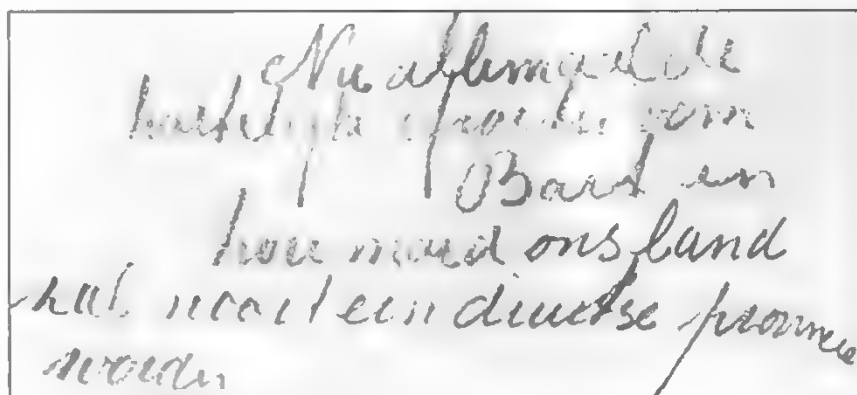 Nu allemaal de
hartelijke groeten van
Bart en
hou moed ons land
zal nooit een duitse provincie
worden